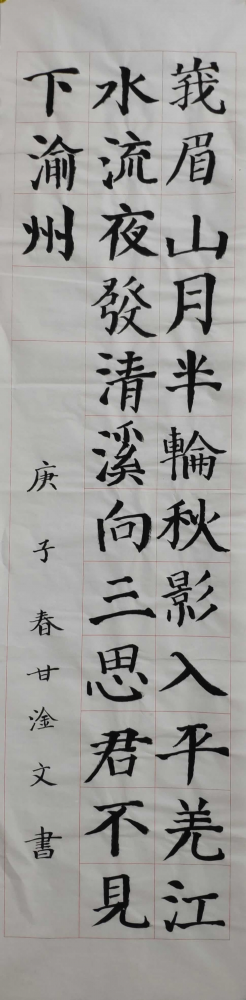 峩眉山月半輪秋影入平羌江
水流夜發清溪向三思君不見
下渝州
庚子春甘淦文書